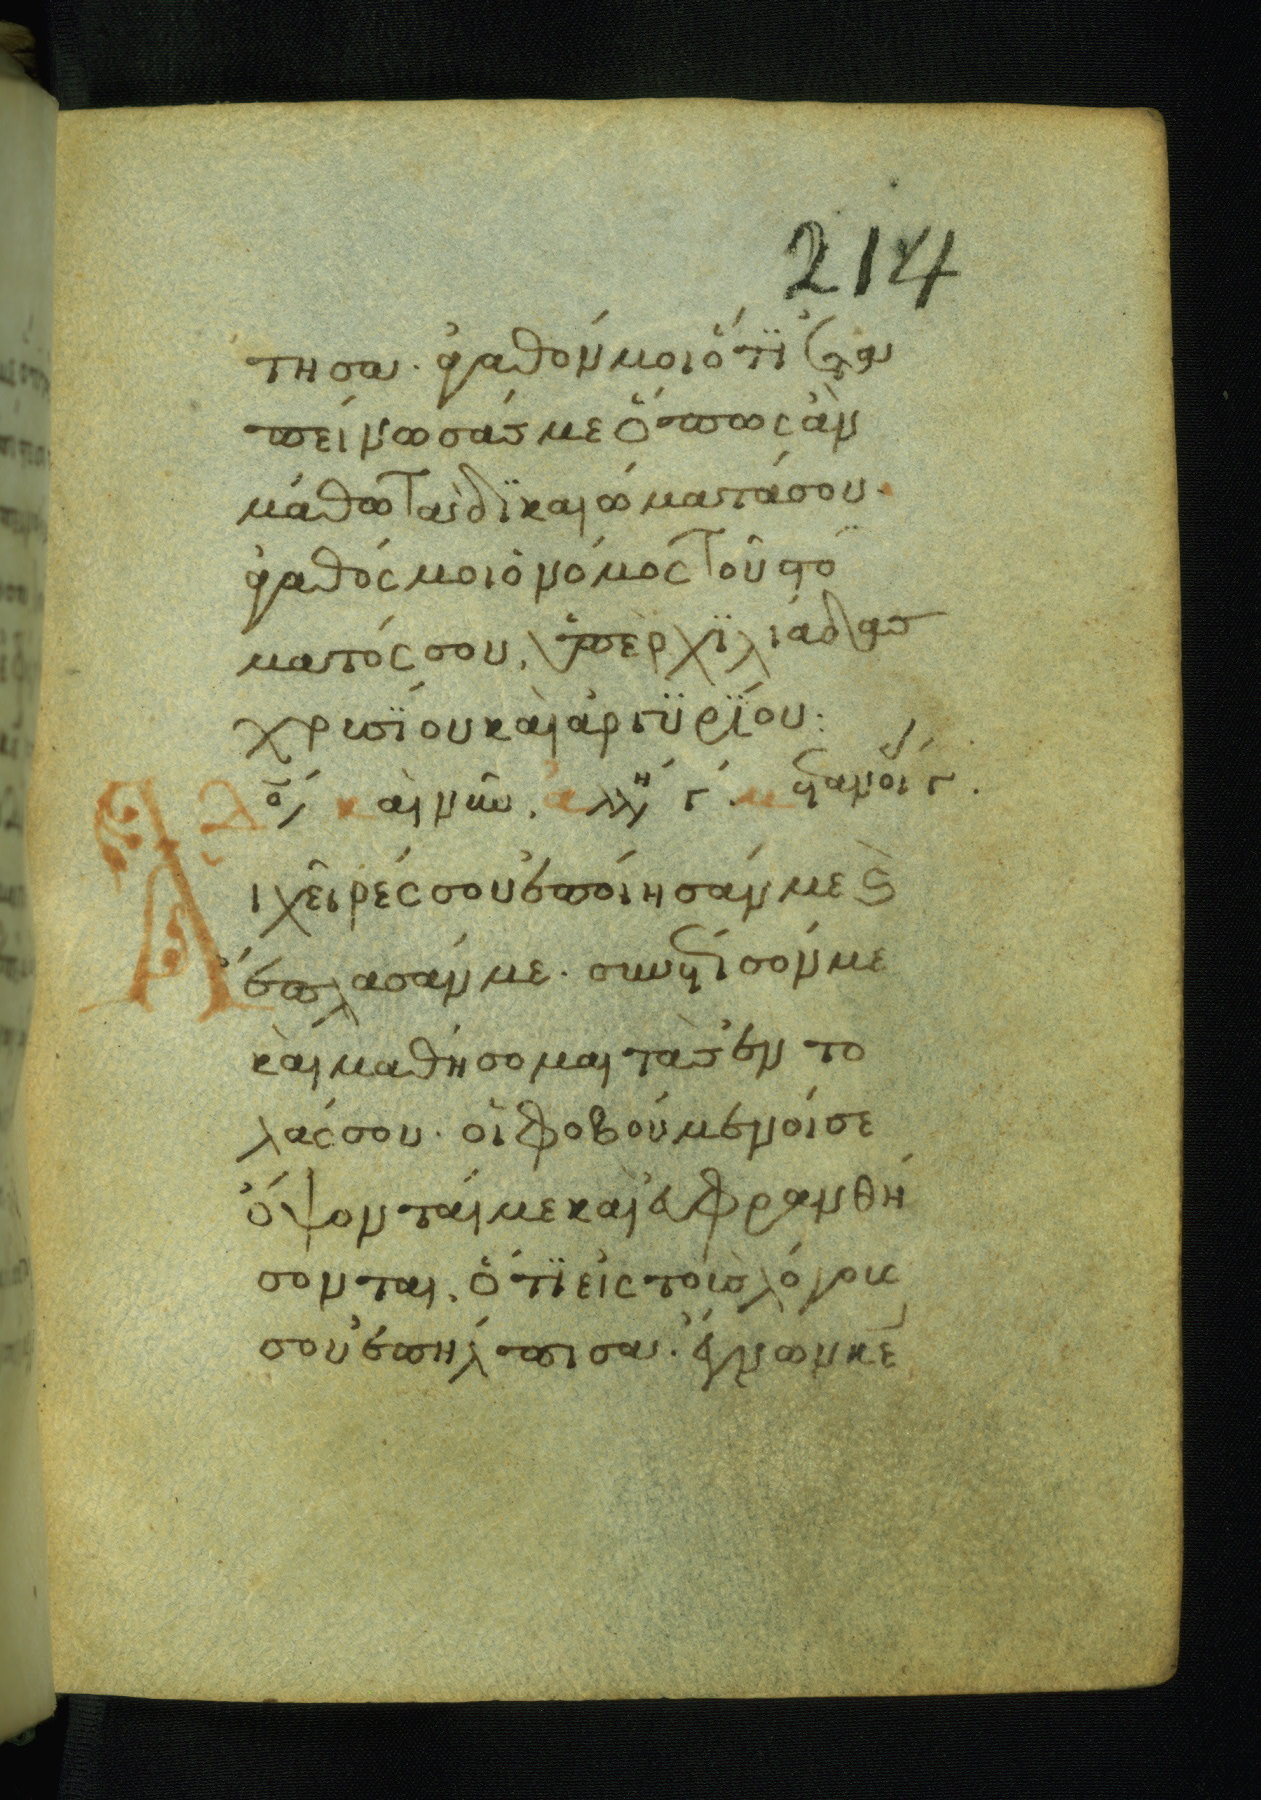 214
τησα. ἀγαθόν μοι ὅτι ἐτα
πείνωσάς με ὅπως ἂν
μάθω τὰ δικαιώματά σου.
ἀγαθός μοι ὁ νόμος τοῦ στό
ματός σου, ὑπὲρ χιλιάδας
χρυσίου καὶ ἀργυρίου:
καὶ νῦν
Αἱ χεῖρές σου ἐποίησάν με καὶ
ἔπλασάν με. συνέτισόν με
καὶ μαθήσομαι τὰς ἐντο
λάς σου. οἱ φοβούμενοί σε
ὄψονταί με καὶ εὐφρανθή
σονται, ὅτι εἰς τοὺς λόγους
σου ἐπήλπισα. ἔγνων κε